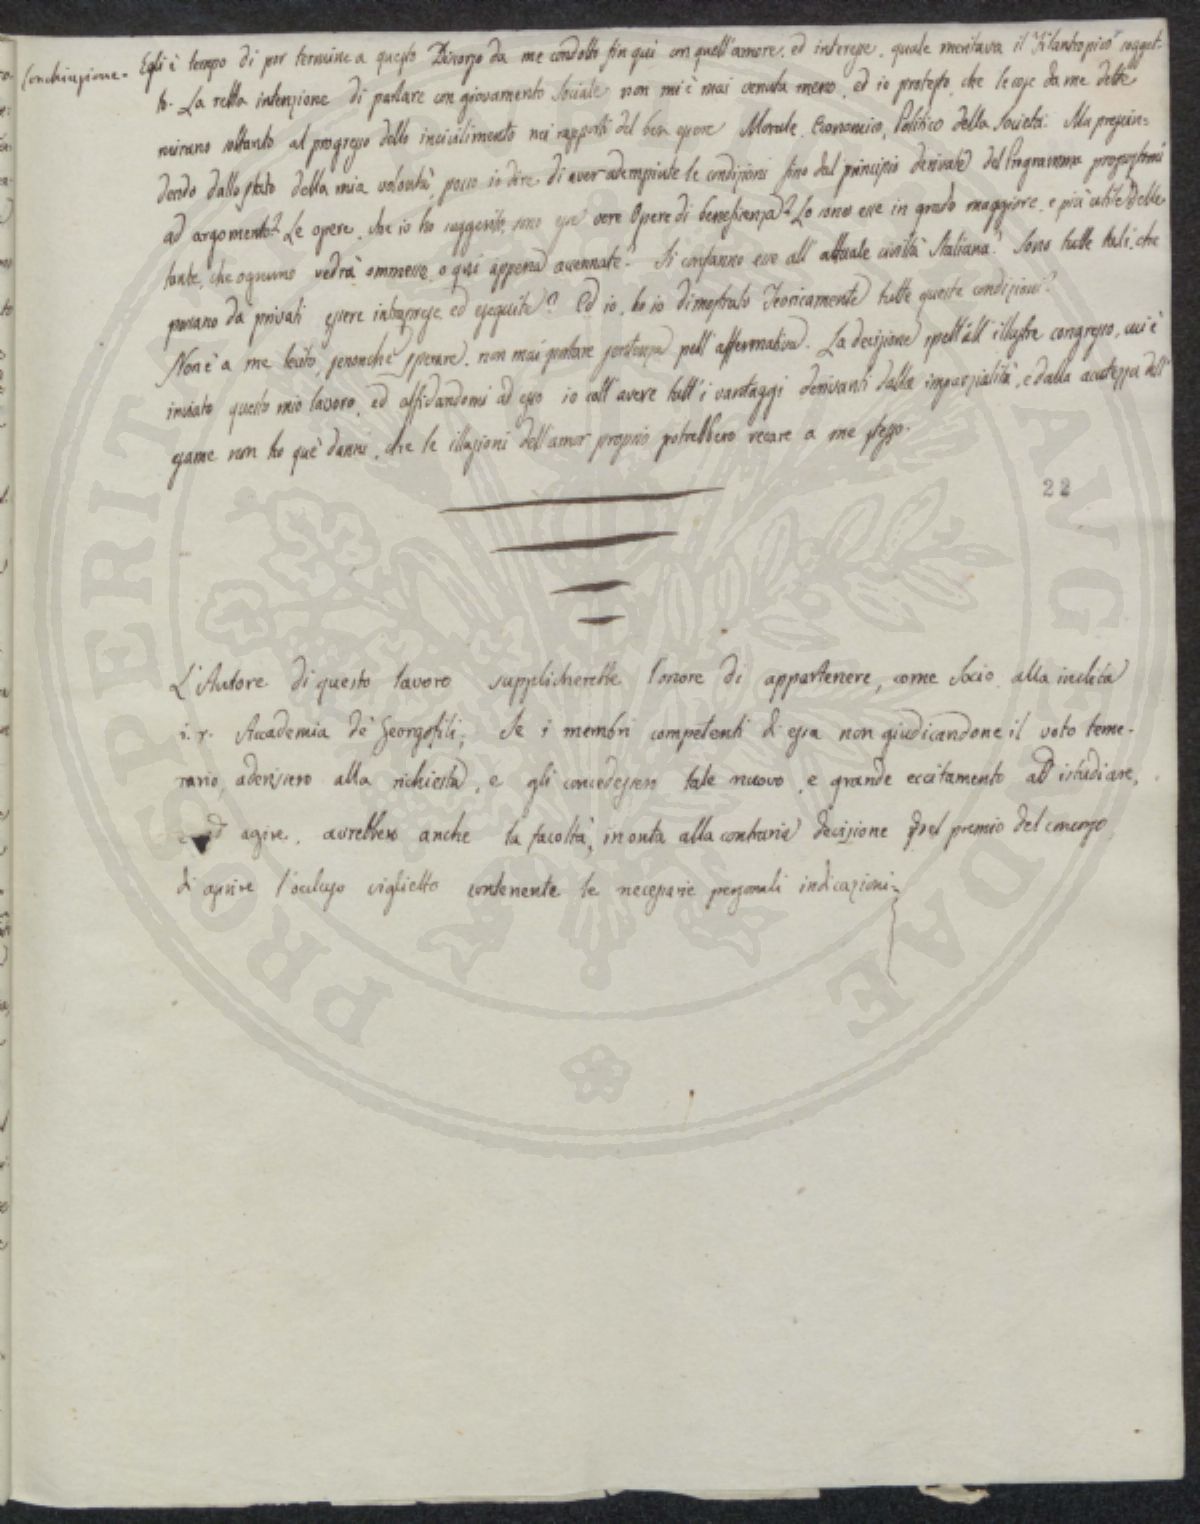 Conchiusione = Egli è tempo di por termine a questo Discorso da me condotto fin qui con quell'amore, ed interesse, quale meritava il Filantropico sogget-
to. La retta intenzione di parlare con giovamento Sociale non mi è mai venuta meno, ed io protesto, che le cose da me dette
mirano soltanto al progresso dello incivilimento nei rapporti del ben essere Morale, Economico, Politico della Società. Ma prescin=
dendo dallo stato della mia volontà, posso io dire di aver adempiute le condizioni fino dal principio derivate del Programma propostomi
ad argomento? Le opere, che io ho suggerito, sono esse vere Opere di beneficenza? Lo sono esse in grado maggiore, e più utile delle
tante, che ognuno vedrà ommesse, o qui appena accennate? Si confanno esse all'attuale civiltà Italiana? Sono tutte tali, che
possano da privati essere intraprese, ed eseguite? Ed io, ho io dimostrato Teoricamente tutte queste condizioni?
Non è a me lecito, senonchè sperare, non mai portare sentenza sull'affermativa. La decisione spett'all'illustre congresso, cui è
inviato questo mio lavoro, ed affidandomi ad esso io coll'avere tutt'i vantaggi derivanti dalla imparzialità, e dalla acutezza dell'
esame non ho que' danni, che le illusioni dell'amor proprio potrebbero recare a me stesso.
22
L'Autore di questo lavoro supplicherebbe l'onore di appartenere, come Socio alla inclita
i. r. Accademia de' Georgofili; Se i membri competenti di essa non giudicandone il voto teme-
rario, aderissero alla richiesta, e gli concedessero tale nuovo, e grande eccitamento ad istudiare,
ed agire, avrebbero anche la facoltà, in onta alla contraria decisione del premio del concorso,
di aprire l'occluso viglietto contenente le necessarie personali indicazioni.
PROSPERITATI AVGENDAE